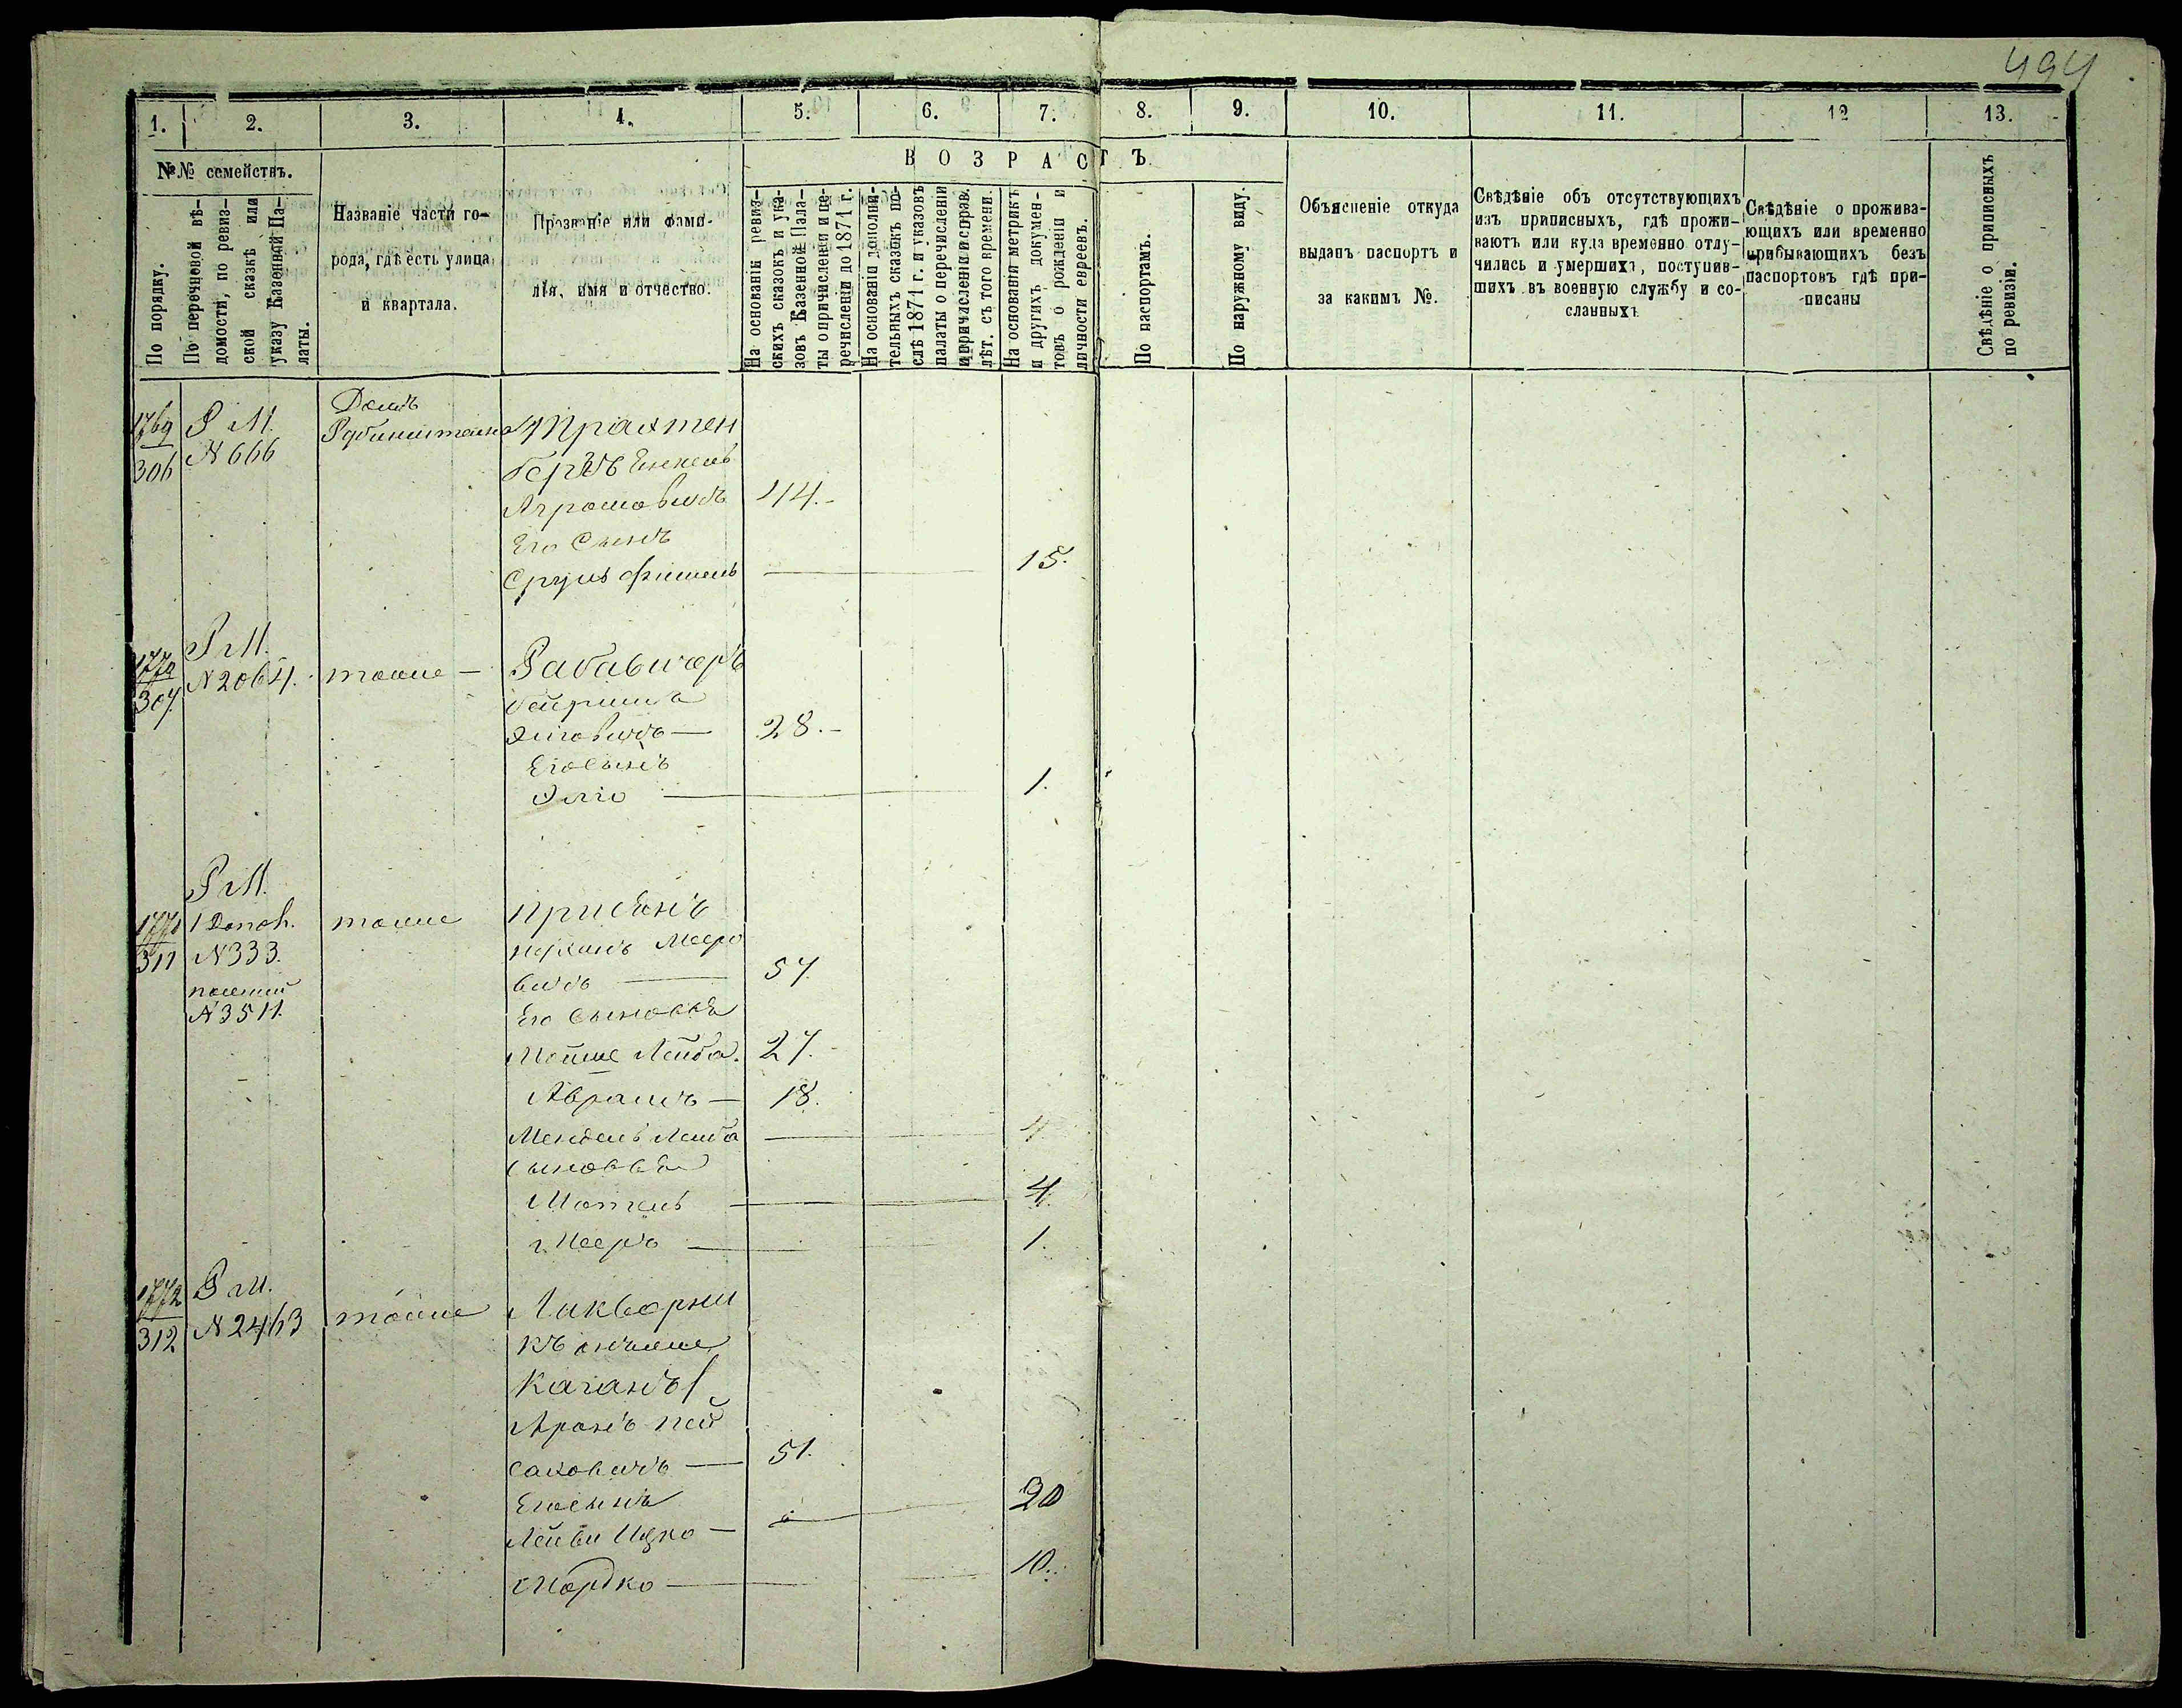 494
1. 2. 3. 4. 5. 6. 7. 8. 9. 10. 11. 12 13.
№№ семействъ.
По порядку.
По перечневой вѣ-
домости, по ревиз-
ской сказкѣ или
указу Казенной Па-
латы.
Названіе части го-
рода, гдѣ есть улица
и квартала.
Прозваніе или фами-
лія, имя и отчество.
ВОЗРАСТЪ
На основаніи ревиз-
скихъ сказокъ и ука-
зовъ Казенной Пала-
ты о причисленіи и пе-
речисленіи до 1871 г.
На основаніи дополни-
тельныхъ сказокъ по-
слѣ 1871 г. и указовъ
палаты о перечисленіи
и причисленіи и справ.
лѣт. съ того времени.
На основаніи метрикъ
и другихъ докумен-
товъ о рожденіи и
личности евреевъ.
По паспортамъ.
По наружному виду.
Объясненіе откуда
выданъ паспортъ и
за какимъ №.
Свѣдѣніе объ отсутствующихъ
изъ приписныхъ, гдѣ прожи-
ваютъ или куда временно отлу-
чились и умершихъ, поступив-
шихъ въ военную службу и со-
сланныхъ
Свѣдѣніе о прожива-
ющихъ или временно
прибывающихъ безъ
паспортовъ гдѣ при-
писаны
Свѣдѣніе о приписныхъ
по ревизіи.
1769 Р М. Домъ
306 N 666 Трахтен
бергъ
44.
Его Сынъ
Сруль Фишель 15.
Р М.
1770 N 2064. тоже —
307
28.
Его сынъ
1.
Р М.
1771 1 тоже
311 N 333.
Мееро
N 3511. вичъ 57.
Его Сыновья
Мойше Лейба. 27.
Аврамъ — 18.
Мендель Лейба 4
Сыновья
Мотель 4.
Мееръ 1.
1772 Р М.
312 N 2463 тоже Ликворни
къ онъже
Каганъ
Аронъ Пей
саховичъ — 51.
Его сынъ 20
Лейви Ицко —
Мордко 10.